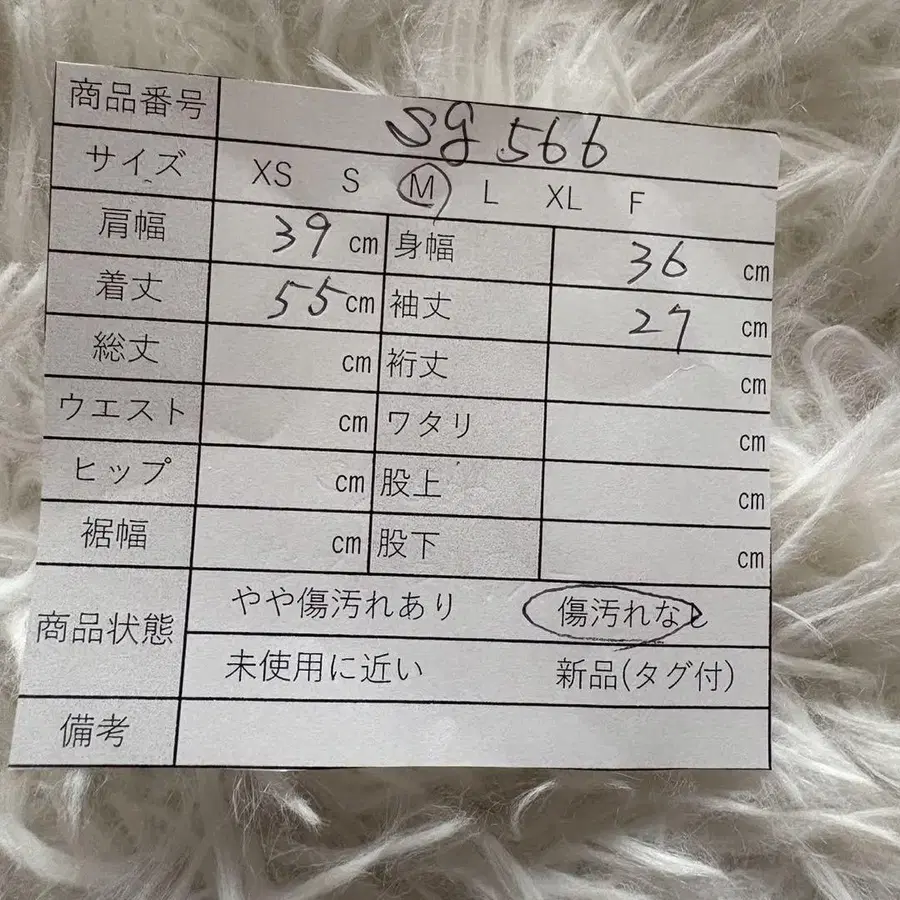 商品番号 sg 566
サイズ XS S M L XL F
肩幅 39 cm 身幅 36 cm
着丈 55 cm 袖丈 27 cm
総丈 cm 裄丈 cm
ウエスト cm ワタリ cm
ヒップ cm 股上 cm
裾幅 cm 股下 cm
商品状態 やや傷汚れあり 傷汚れなし
未使用に近い 新品(タグ付)
備考